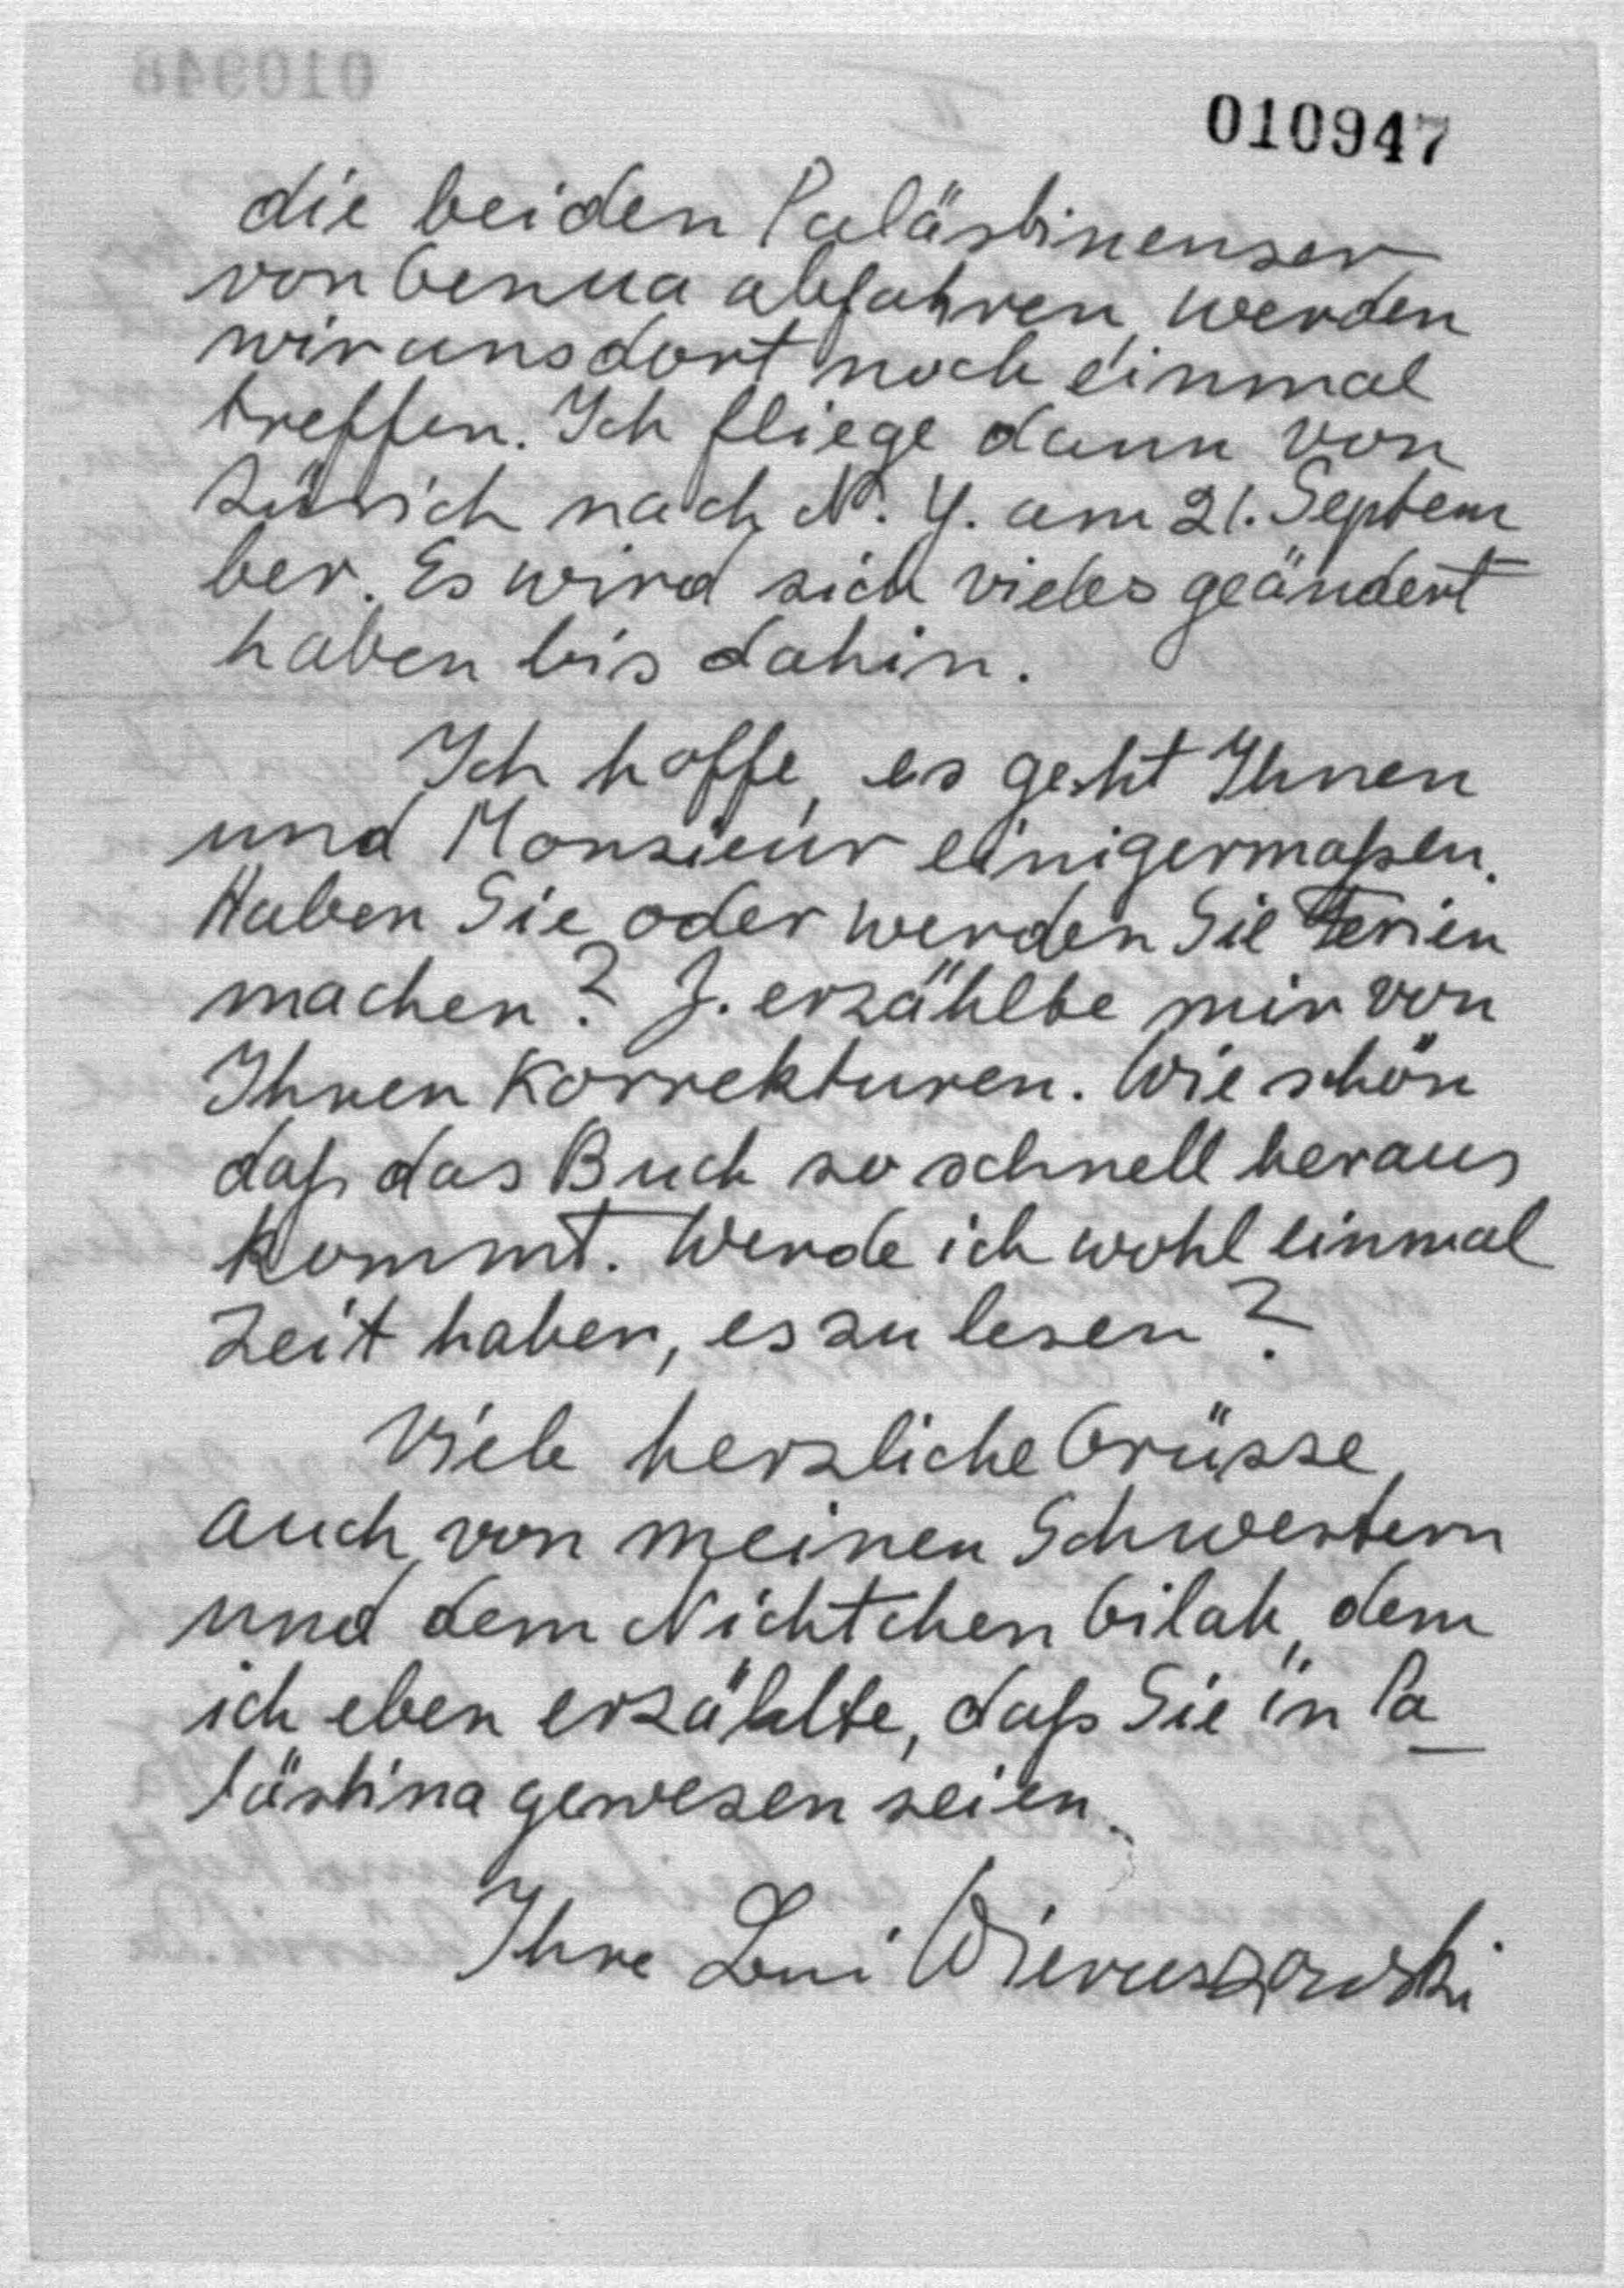 010947
die beiden Palästinenser
von Genua abfahren, werden
wir uns dort noch einmal
treffen. Ich fliege dann von
Zürich nach N. Y. am 21. Septem
ber. Es wird sich vieles geändert
haben bis dahin.
Ich hoffe, es geht Ihnen
und Monsieur einigermaßen.
Haben Sie oder werden Sie Ferien
machen? J. erzählte mir von
Ihren Korrekturen. Wie schön
daß das Buch so schnell heraus
kommt. Werde ich wohl einmal
Zeit haben, es zu lesen?
Viele herzliche Grüsse,
auch von meinen Schwestern
und dem Nichtchen Gilah, dem
ich eben erzählte, daß Sie in Pa
lästina gewesen seien.
Ihre Leni Wieruszowski